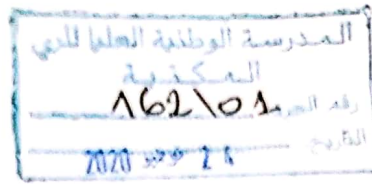 المدرسة الوطنية العليا للري
المكتبة
رقم الجرد 162\01
التاريخ 2020